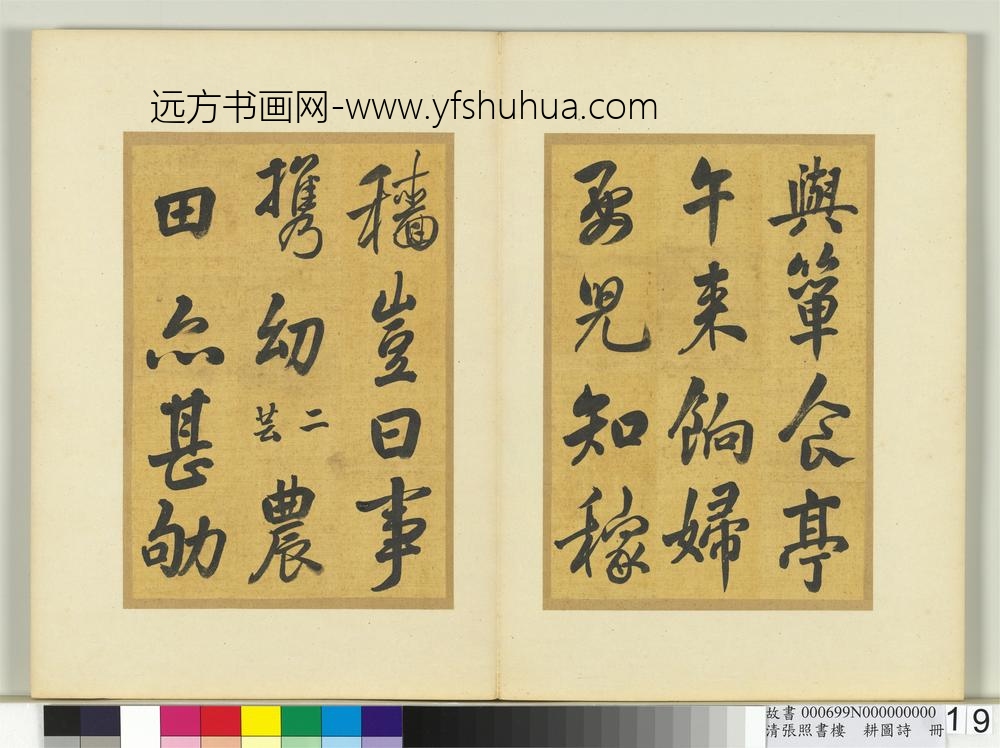 远方书画网-www.yfshuhua.com
與簞食亭
午来餉婦
要兒知稼
穡豈曰事
携幼二芸農
田亦甚劬
故書 000699N000000000
清張照書樓 耕圖詩 冊
19